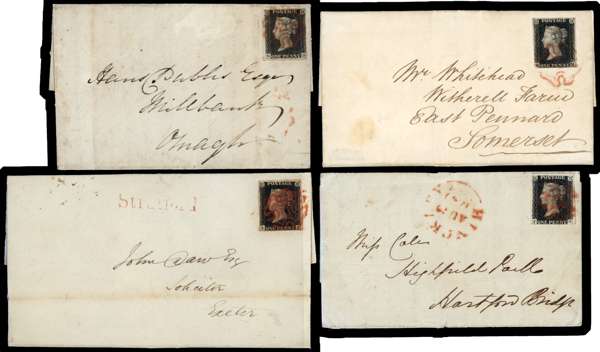 POSTAGE
ONE PENNY
Esqr
Millbank
Omagh
POSTAGE
ONE PENNY
Mr Whitehead
Witherell Farm
East Pennard
Somerset
POSTAGE
ONE PENNY
John Daw Esq
Solicitor
Exeter
POSTAGE
ONE PENNY
HINCKLEY
Miss Cole
Highfield
Hartford Bridge